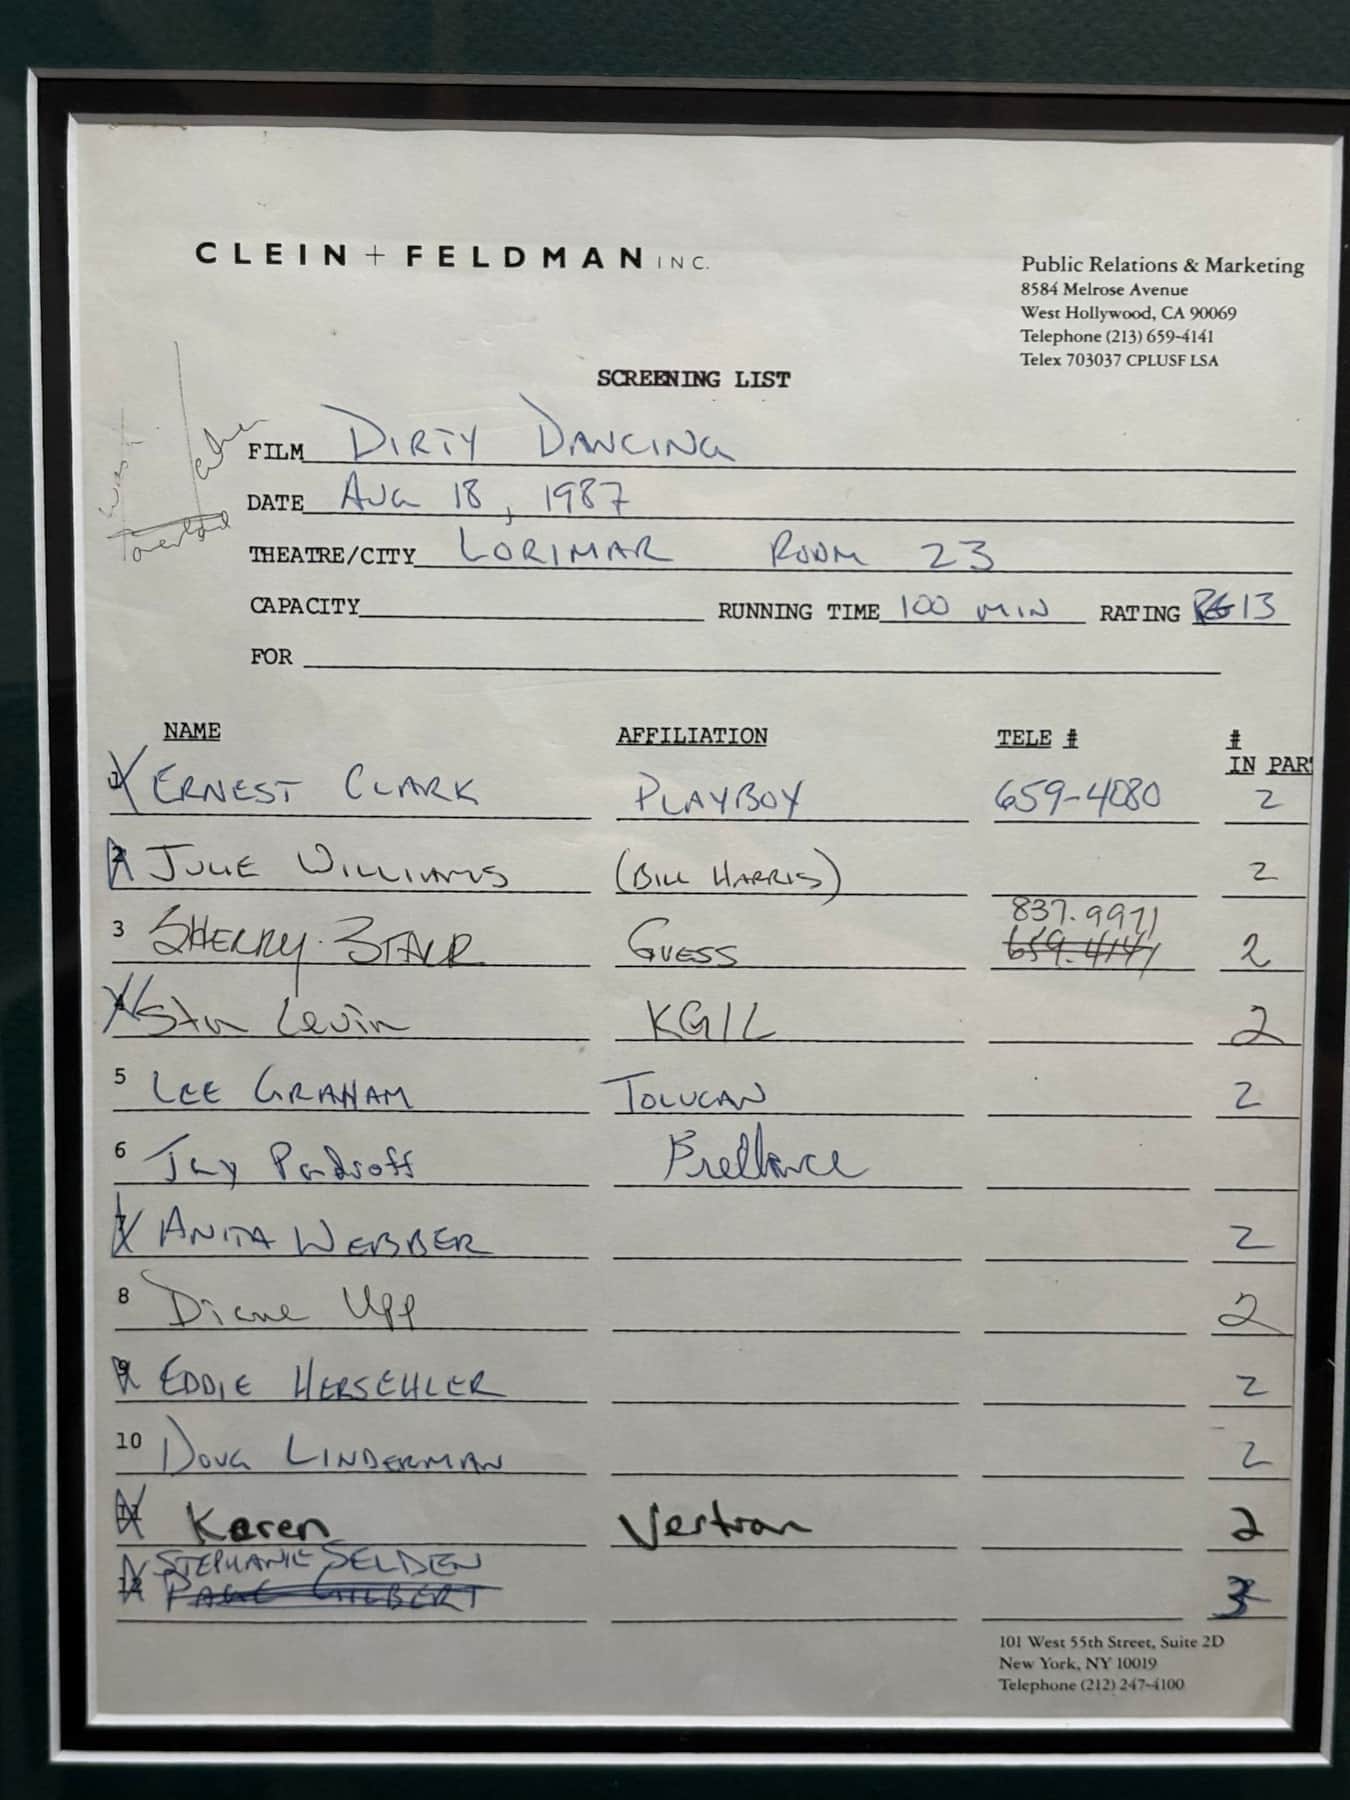 CLEIN + FELDMAN INC.
Public Relations & Marketing
8584 Melrose Avenue
West Hollywood, CA 90069
Telephone (213) 659-4141
Telex 703037 CPLUSF LSA
SCREENING LIST
FILM DIRTY DANCING
DATE AUG 18, 1987
THEATRE/CITY LORIMAR ROOM 23
CAPACITY RUNNING TIME 100 MIN RATING PG 13
FOR
NAME AFFILIATION TELE # # IN PAR
1 ERNEST CLARK PLAYBOY 659-4080 2
2 JULIE WILLIAMS (BILL HARRIS) 2
837.9971
3 SHERRY GUESS 659.4141 2
4 Stan Levin KGIL 2
5 LEE GRAHAM TOLUCAN 2
6 Jay Padroff
7 ANITA WEBBER 2
8 Diane Upp 2
9 EDDIE HERSEHLER 2
10 DOUG LINDERMAN 2
11 Karen Vertran 2
STEPHANIE SELDEN
12 GILBERT 3
101 West 55th Street, Suite 2D
New York, NY 10019
Telephone (212) 247-4100